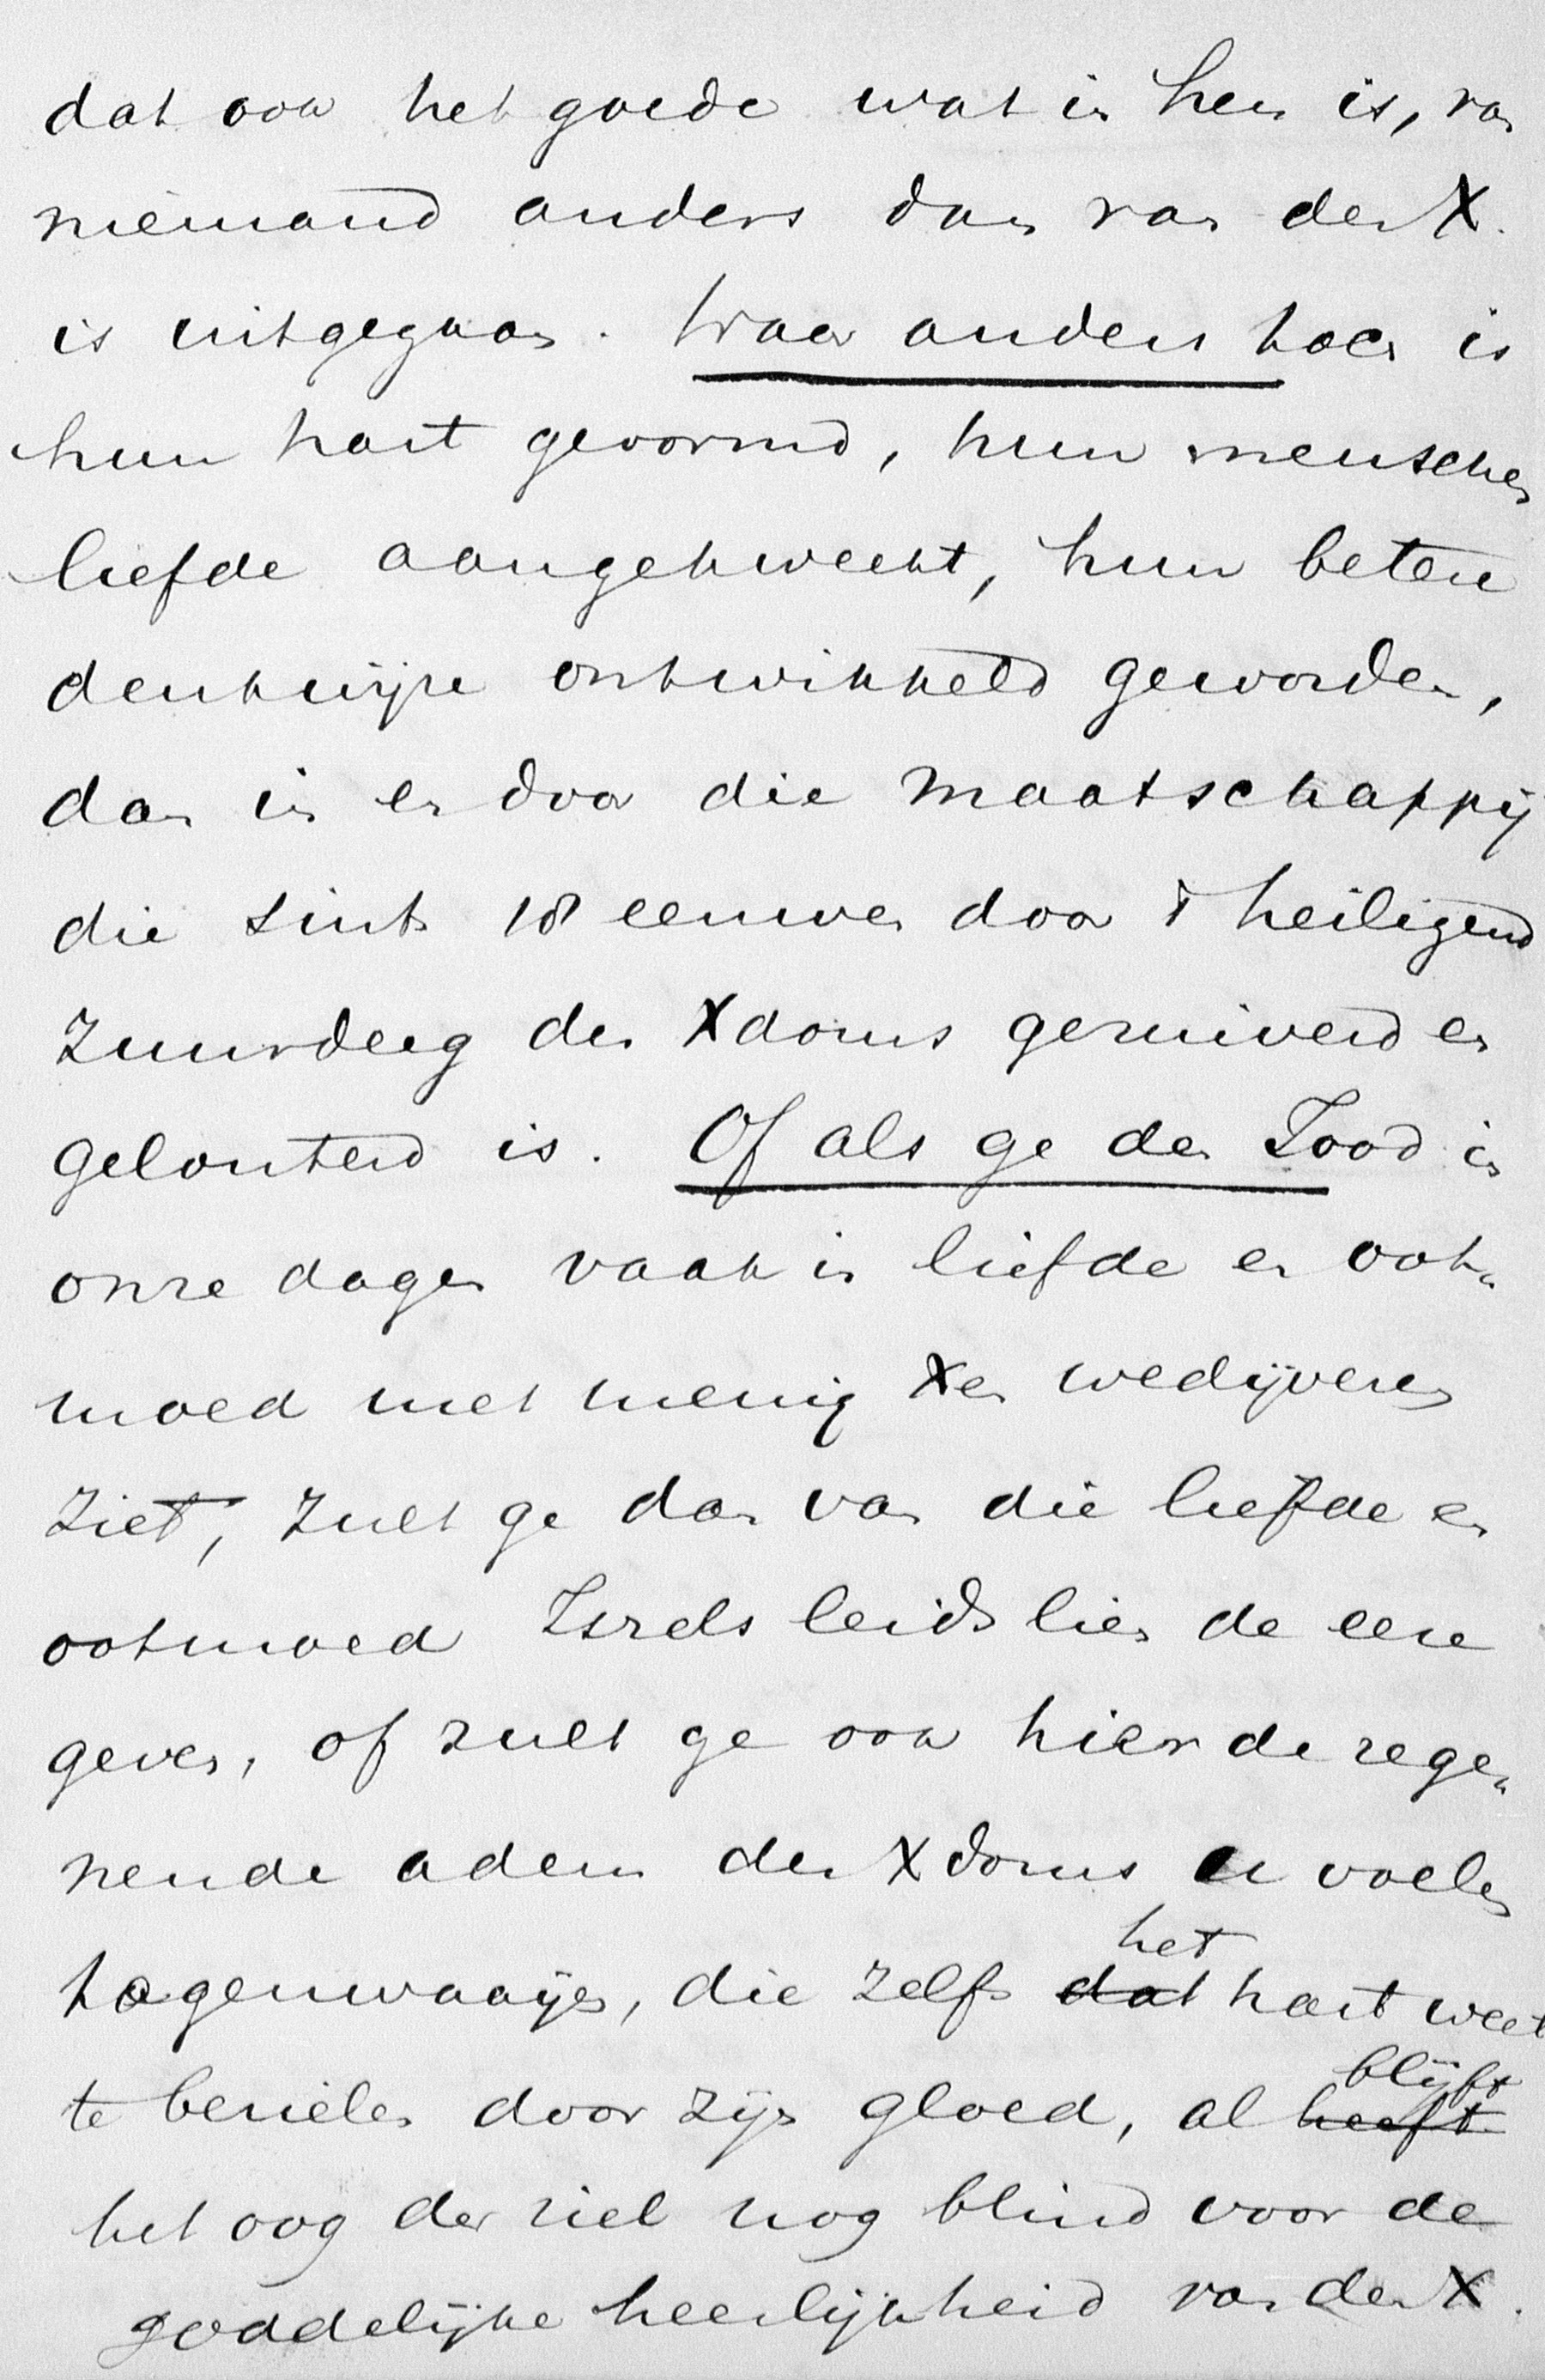 dat ook het goede wat in hen is, van
niemand anders dan van den X.
is uitgegaan. Waar anders toch is
hun hart gevormd, hun menschen
liefde aangekweekt, hun betere
denkwijze ontwikkeld geworden,
dan in en door die maatschappij
die sints 18 eeuwen door 't heiligend
zuurdeeg des Xdoms gezuiverd en
gelouterd is. Of als ge den Jood in
onze dagen vaak in liefde en oot„
moed met menig Xen wedijveren
ziet, zult ge dan van die liefde en
ootmoed Isrels leidslien de eere
geven, of zult ge ook hier de zege„
nende adem des Xdoms u voelen
tegenwaaijen, die zelfs dat het hart weet
te bezielen door zijn gloed, al heeft blijft
het oog der ziel nog blind voor de
goddelijke heerlijkheid van den X.